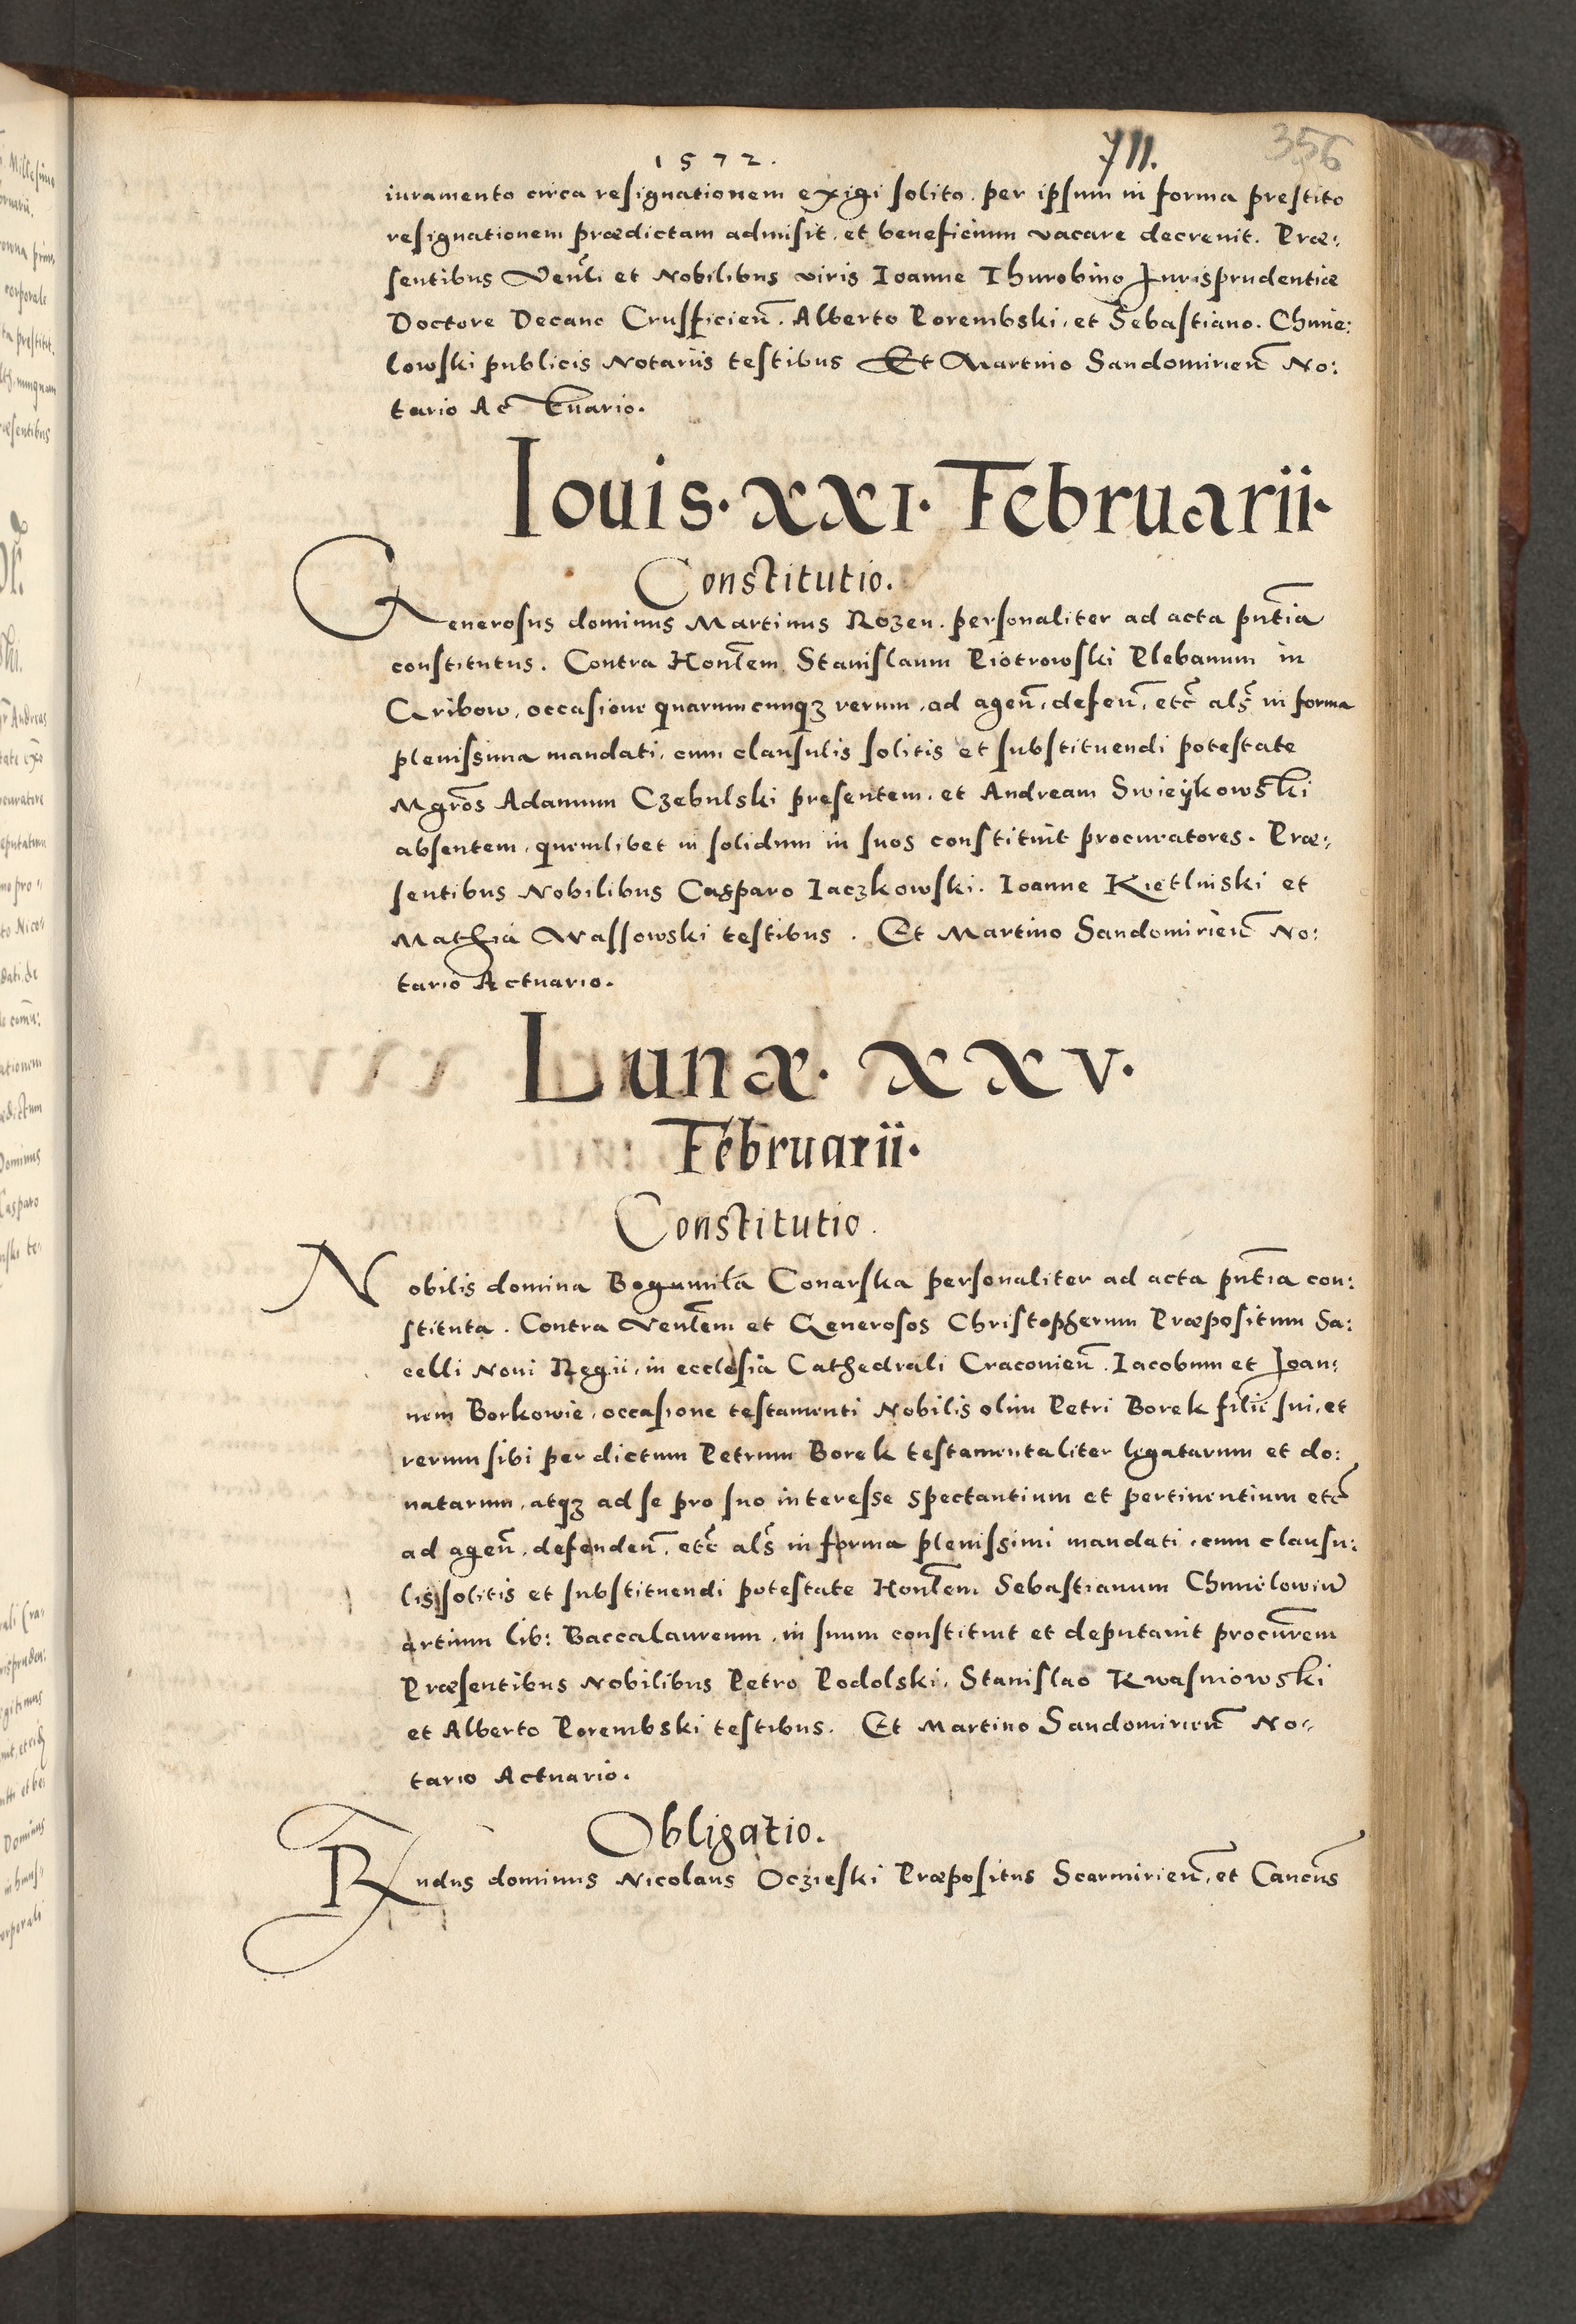 1572.
711.
356
iuramento circa resignationem exigi solito. per ipsum in forma prestito
resignationem prædictam admisit, et beneficium vacare decrevit. Præ:
sentibus Venli et Nobilibus viris Ioanne Thurobino Jurisprudentiæ
Doctore Decano Crusficien. Alberto Porembski, et Sebastiano. Chmie:
lowski publicis Notariis testibus Et Martino Sandomirien No:
tario Actuario.
Iouis. XXI. Februarii.
Constitutio.
Generosus dominus Martinus Rozen. personaliter ad acta pntia
constitutus. Contra Honlem Stanislaum Piotrowski Plebanum in
Gribow, occasione quarumcunqz rerum, ad agen, defen, etc als in forma
plenissima mandati, cum clausulis solitis et substituendi potestate
Mgros Adamum Czebulski presentem, et Andream Swieykowski
absentem, quemlibet in solidum in suos constituit procuratores. Præ:
sentibus Nobilibus Casparo Iaczkowski. Ioanne Kietlinski et
Mathia Wassowski testibus. Et Martino Sandomirien No:
tario Actuario.
Lunæ. XXV.
Februarii.
Constitutio.
Nobilis domina Bogumila Conarska personaliter ad acta pntia con:
stituta. Contra Venlem et Generosos Christopherum Præpositum Sa:
celli Noui Regii, in ecclesia Cathedrali Cracouien. Iacobum et Joan:
nem Borkowie, occasione testamenti Nobilis olim Petri Borek filii sui, et
rerum sibi per dictum Petrum Borek testamentaliter legatarum et do:
natarum, atqz ad se pro suo interesse spectantium et pertinentium etc
ad agen, defenden, etc als in forma plenissimi mandati, cum clausu:
lis solitis et substituendi potestate Honlem Sebastianum Chmielowiu
artium lib: Baccalaureum, in suum constituit et deputauit procurem
Præsentibus Nobilibus Petro Podolski, Stanislao Kwasniowski
et Alberto Porembski testibus. Et Martino Sandomirien No:
tario Actuario.
Obligatio.
Rndus dominus Nicolaus Oczieski Præpositus Scarmirien, et Cancus